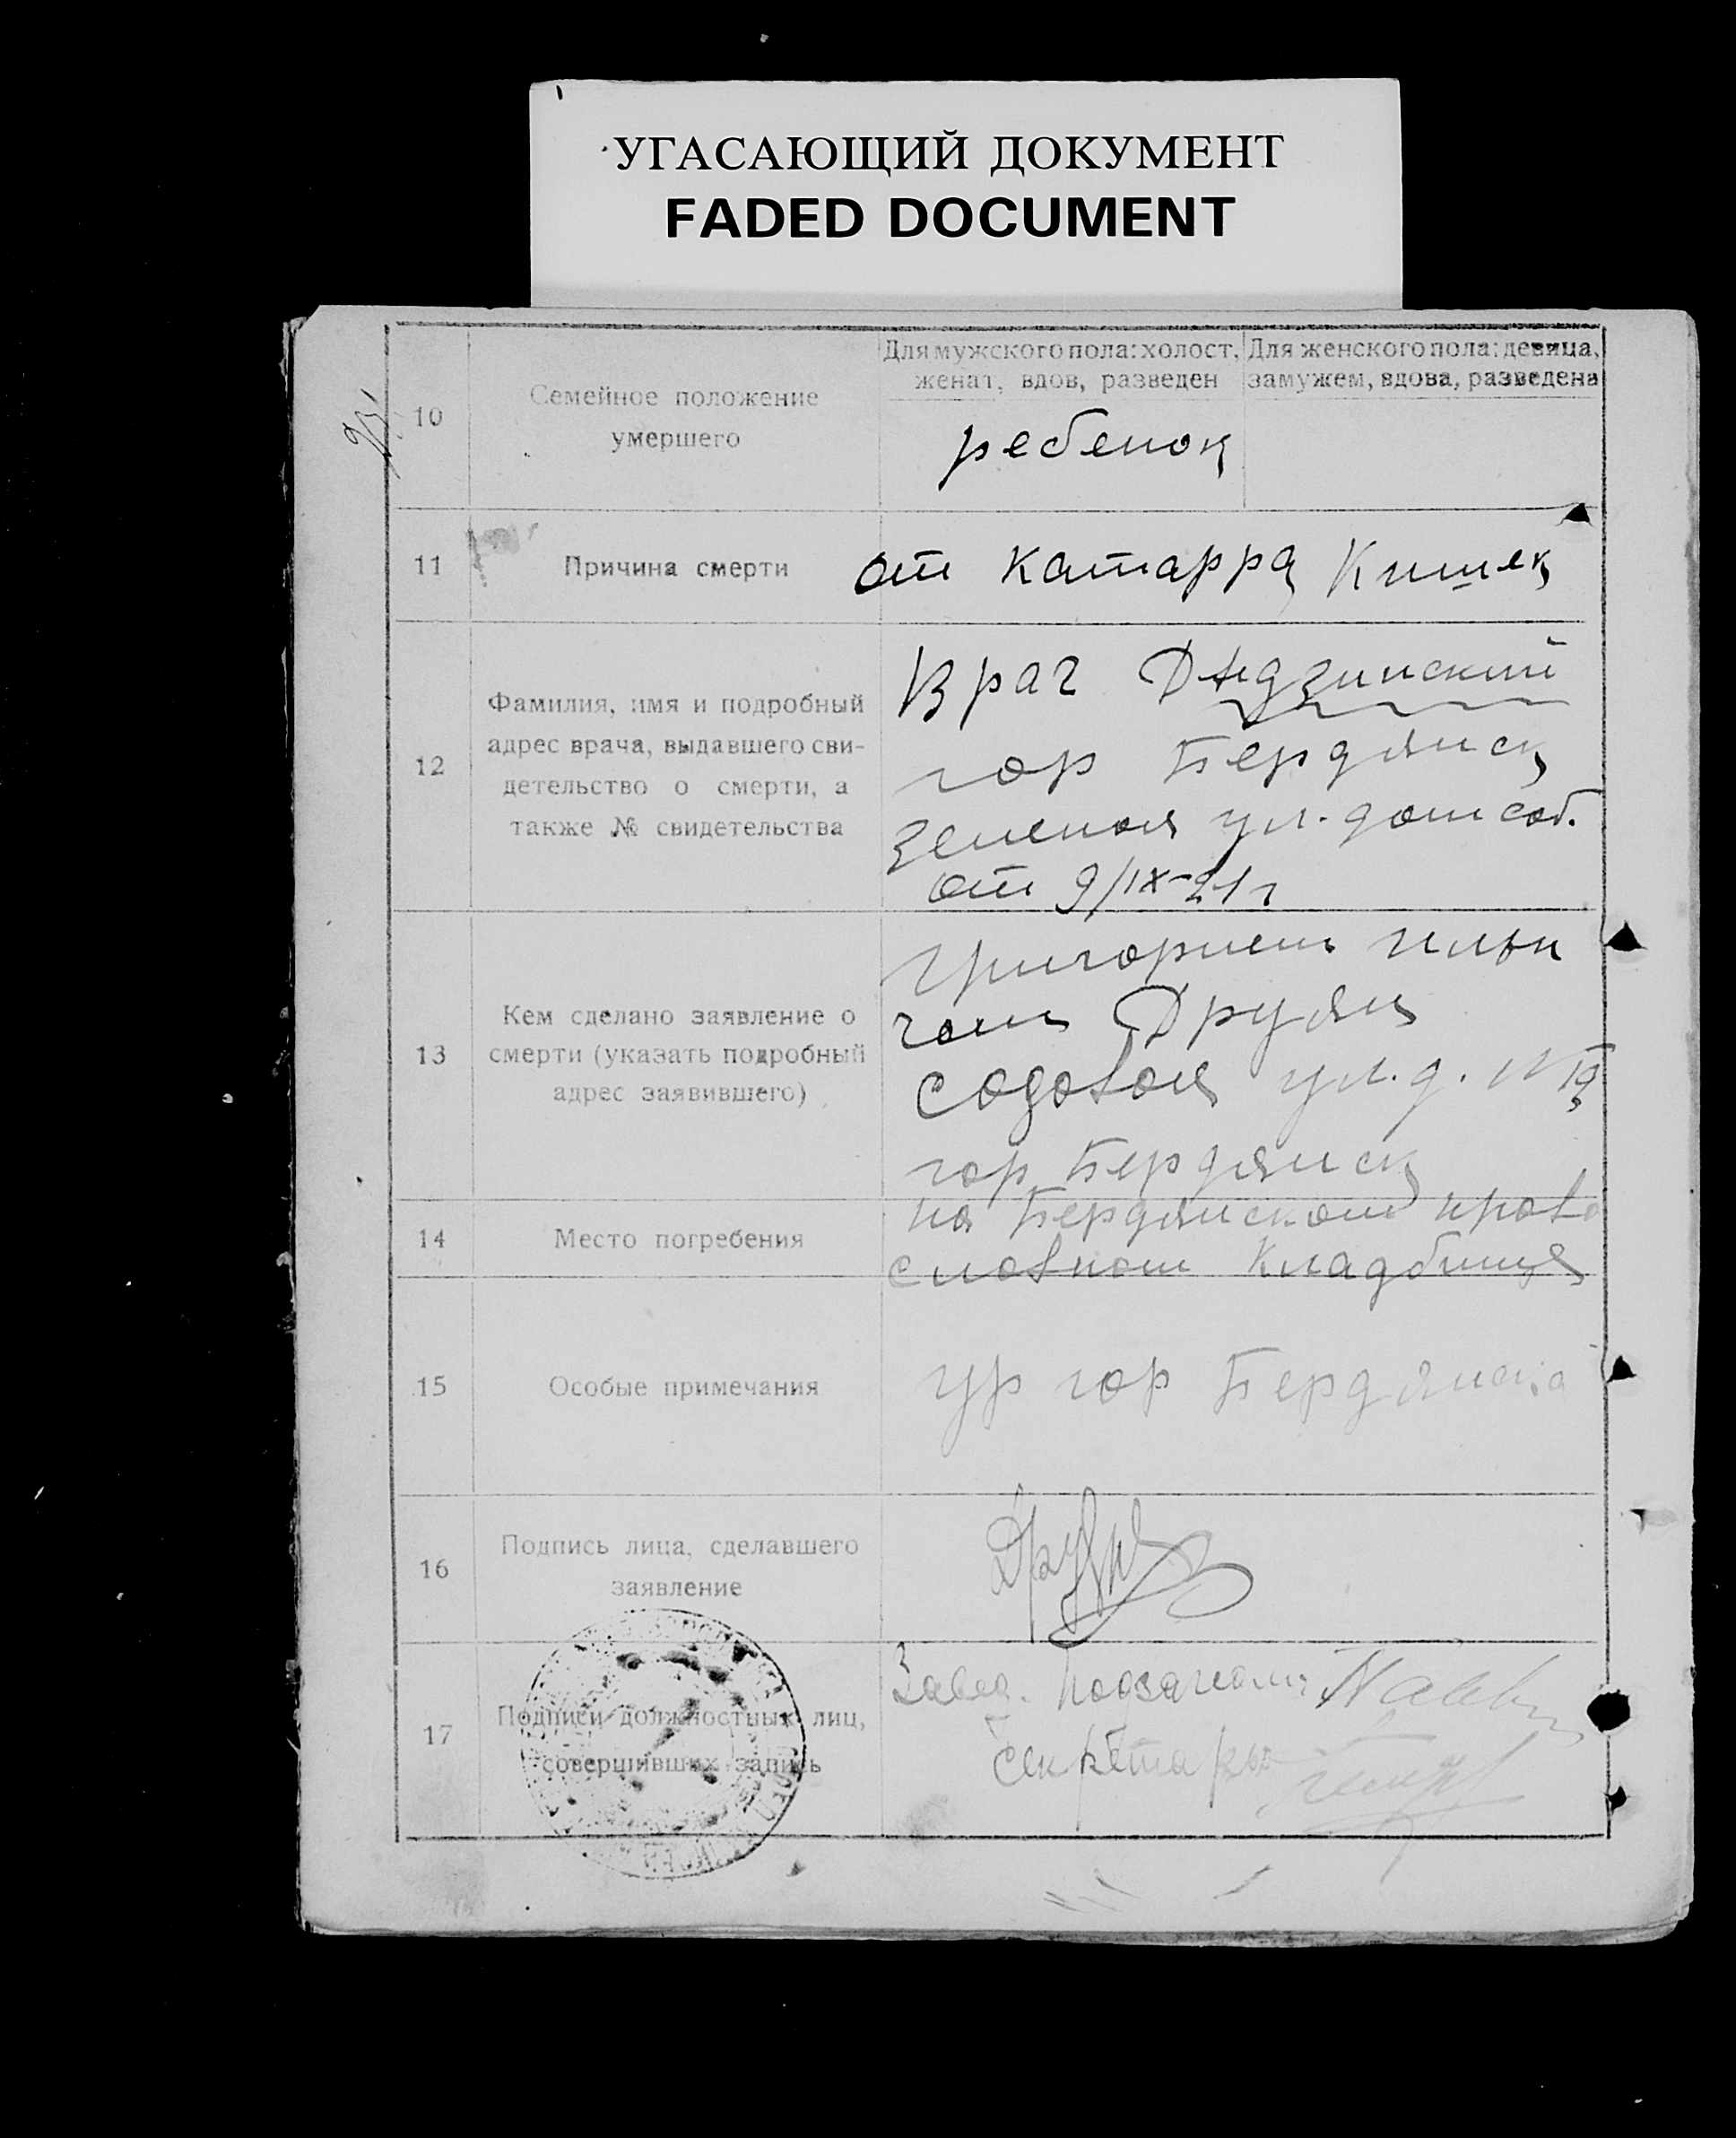 УГАСАЮЩИЙ ДОКУМЕНТ
FADED DOCUMENT
10
Семейное положение
умершего
Для мужского пола: холост,
женат, вдов, разведен
Для женского пола: девица,
замужем, вдова, разведена
ребенок
11
Причина смерти
от катарра кишек
12
Фамилия, имя и подробный
адрес врача, выдавшего сви-
детельство о смерти, а
также № свидетельства
Врач
гор Бердянск
Зеленая ул. дом соб.
от 9/IX-21 г
13
Кем сделано заявление о
смерти (указать подробный
адрес заявившего)
Григорием Ильи
чом Друян
Садовая ул. д. №
гор Бердянск
14
Место погребения
на Бердянском право
славном кладбище
15
Особые примечания
гр гор Бердянска
16
Подпись лица, сделавшего
заявление
17
Подписи должностных лиц,
совершивших запись
Завед. Подзагсом
Секретарь